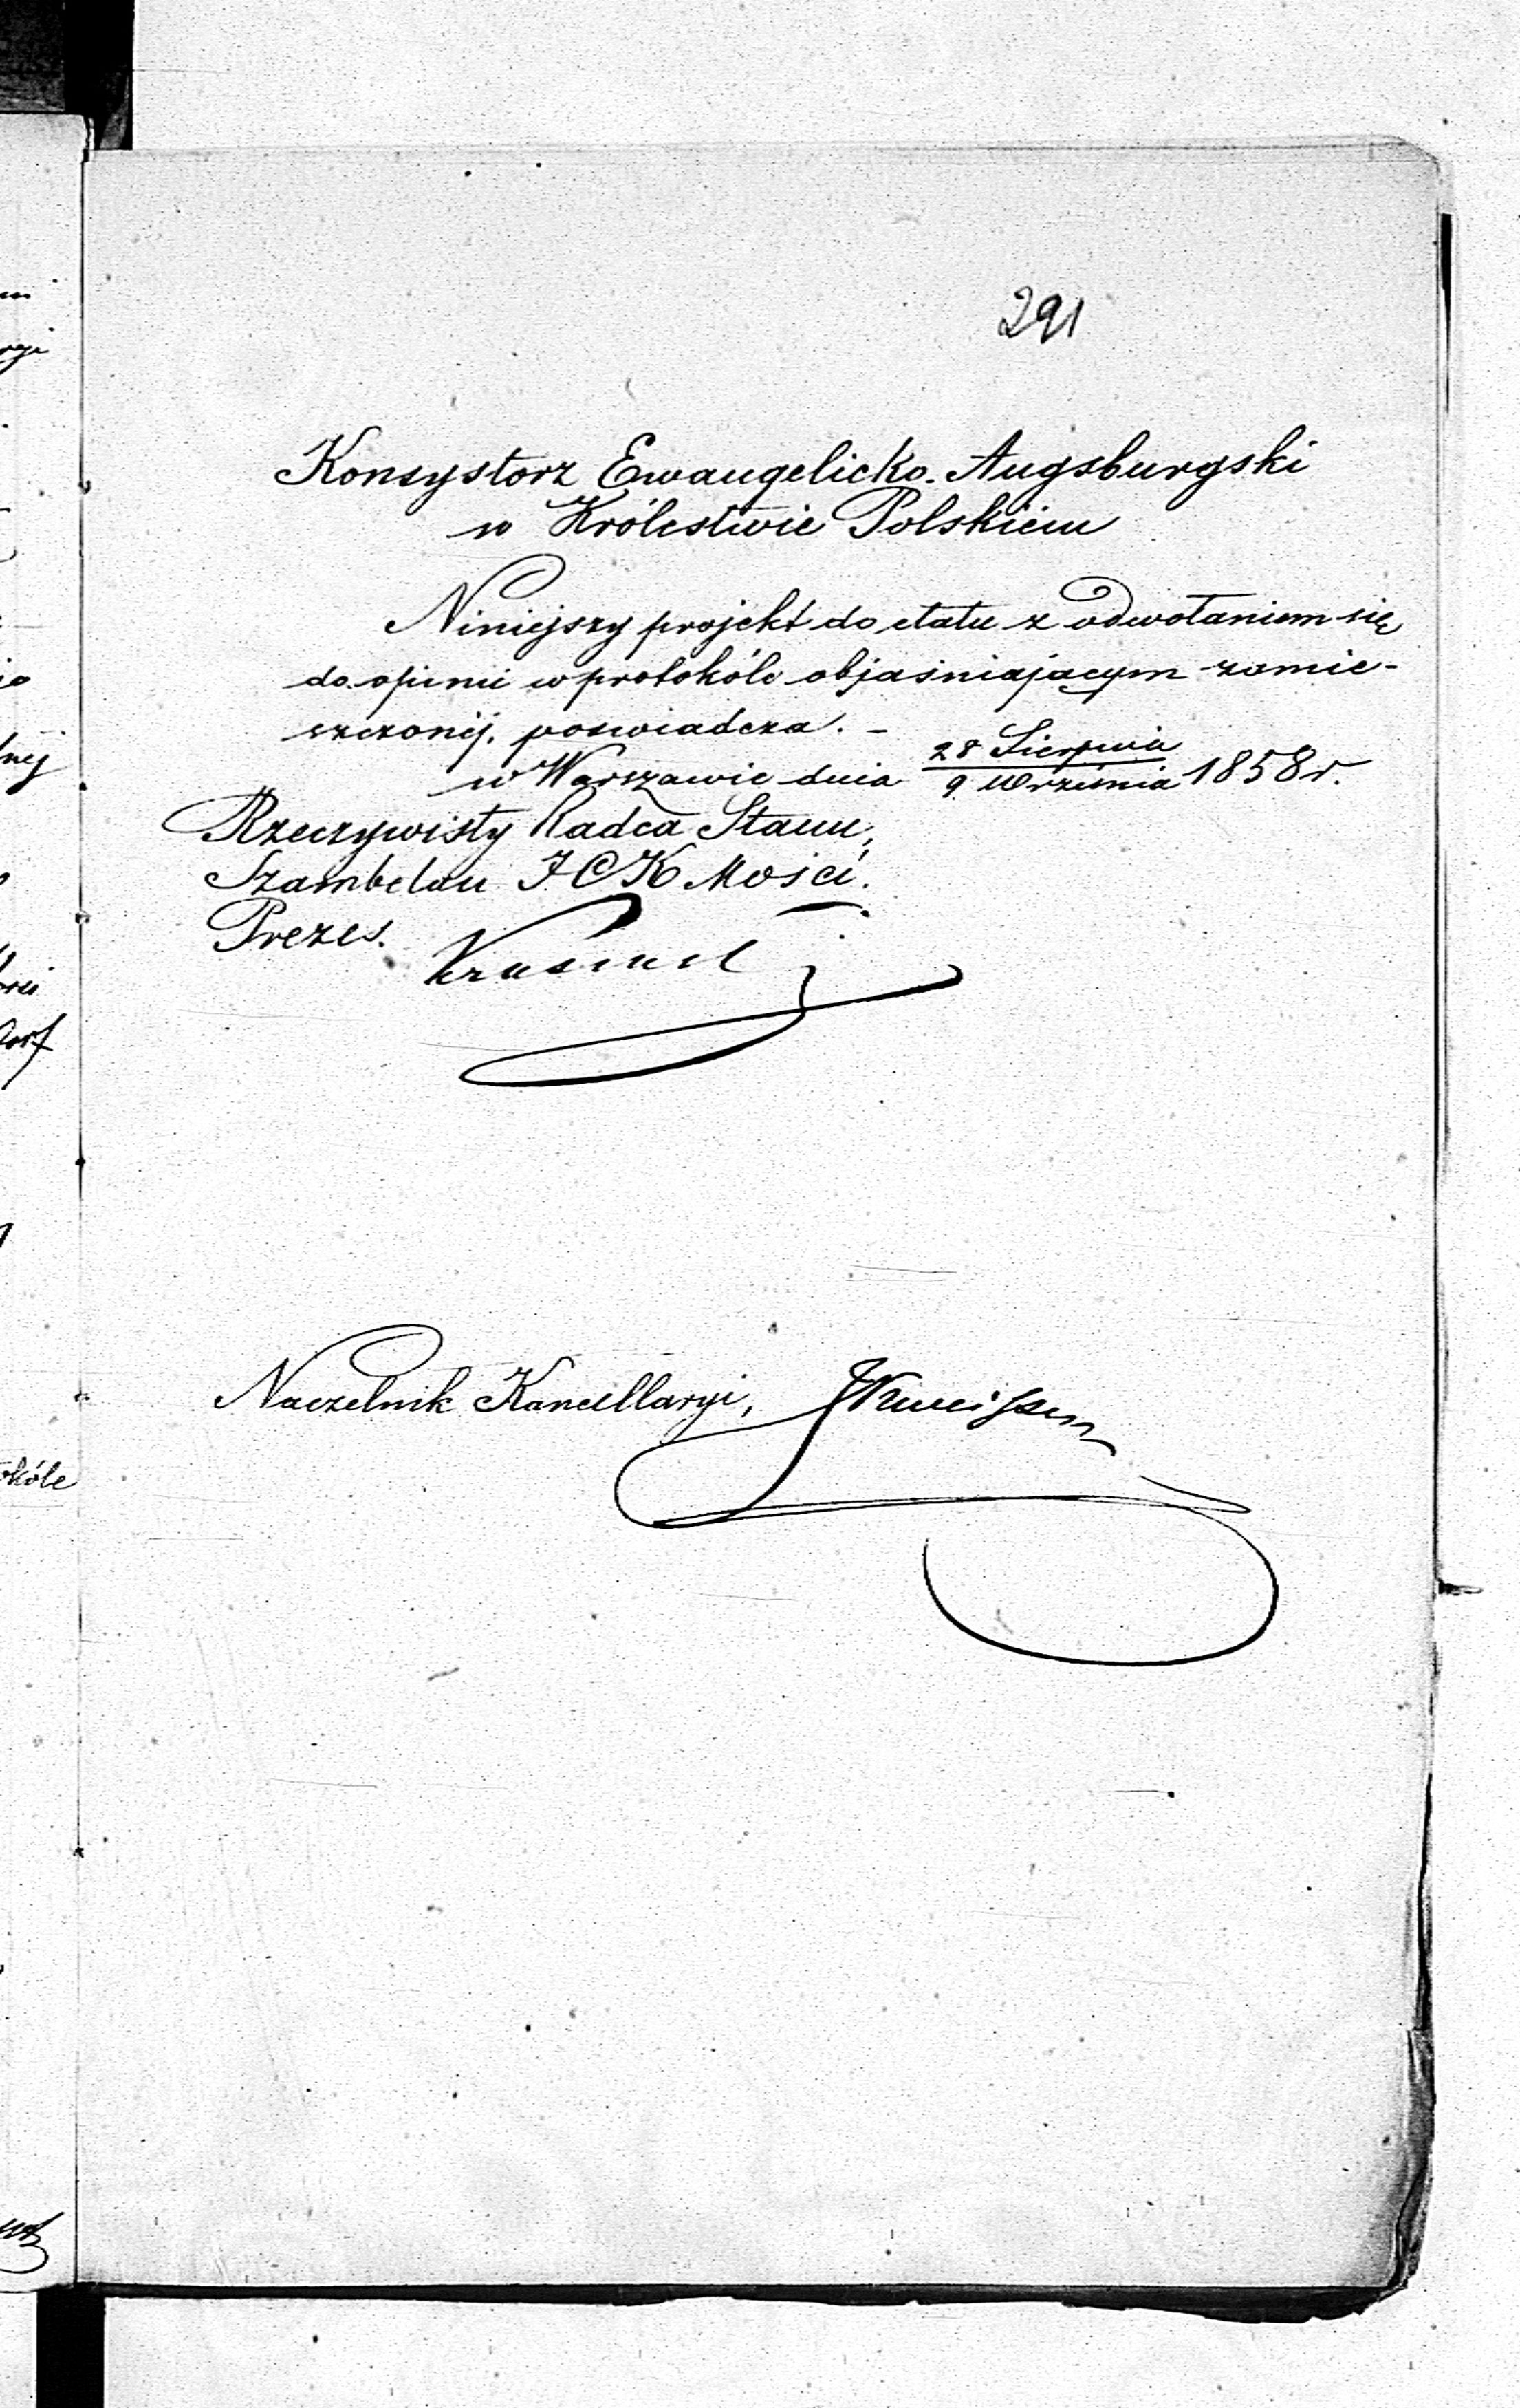 291
Konsystorz Ewangelicko-Augsburgski
w Królestwie Polskiem
Niniejszy projekt do etatu z odwołaniem się
do opinii w protokóle objaśniającym zamie-
szczonéj, poswiadcza. -
w Warszawie dnia 28 Sierpnia / 9 Września 1858 r.
Rzeczywisty Radca Stanu,
Szambelan J C K Mości.
Prezes.
Naczelnik Kancellaryi,
okóle